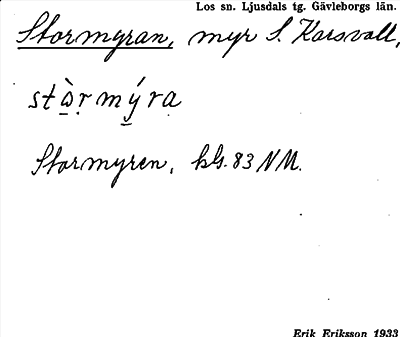 Los sn. Ljusdals tg. Gävleborgs län.
Stormyran, myr S. Karsvall,
stò̱ṛmý̱rạ
Stormyren, kls. 83 NM.
Erik Eriksson 1933